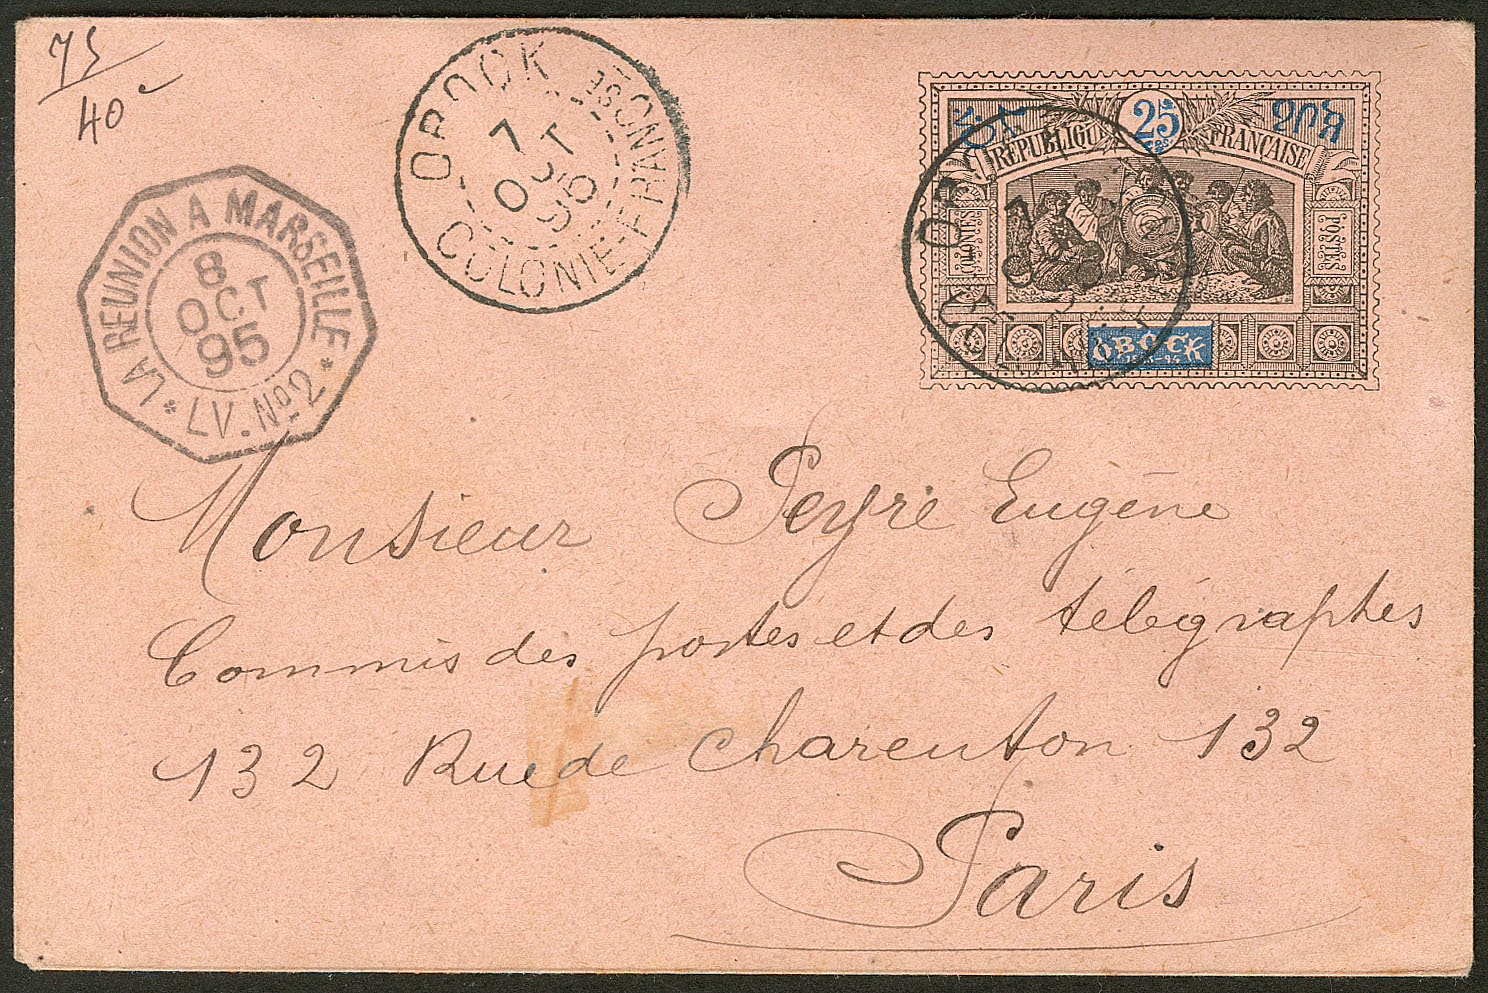 75
40
OBOCK
7
OCT
95
COLONIE-FRANÇAISE
LA REUNION A MARSEILLE
8
OCT
95
* LV. No 2 *
25
RÉPUBLIQUE FRANÇAISE
COLONIES
POSTES
OBOCK
OBOCK
7
Monsieur Peyre Eugène
Commis des postes et des télégraphes
132 Rue de Charenton 132
Paris